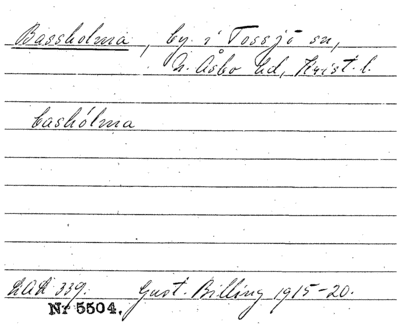 Bassholma, by i Tossjö sn,
N. Åsbo hd, Krist. l.
bashólma
LAL 339. Gust. Billing 1915-20.
Nr 5504.